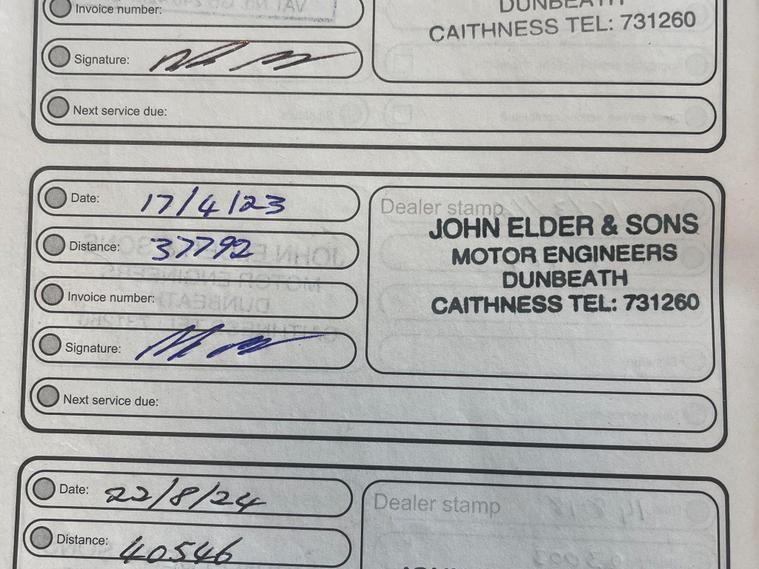 Invoice number:
DUNBEATH
CAITHNESS TEL: 731260
Signature:
Next service due:
Date: 17/4/23
Dealer stamp
JOHN ELDER & SONS
MOTOR ENGINEERS
DUNBEATH
CAITHNESS TEL: 731260
Distance: 37792
Invoice number:
Signature:
Next service due:
Date: 22/8/24
Dealer stamp
Distance: 40546